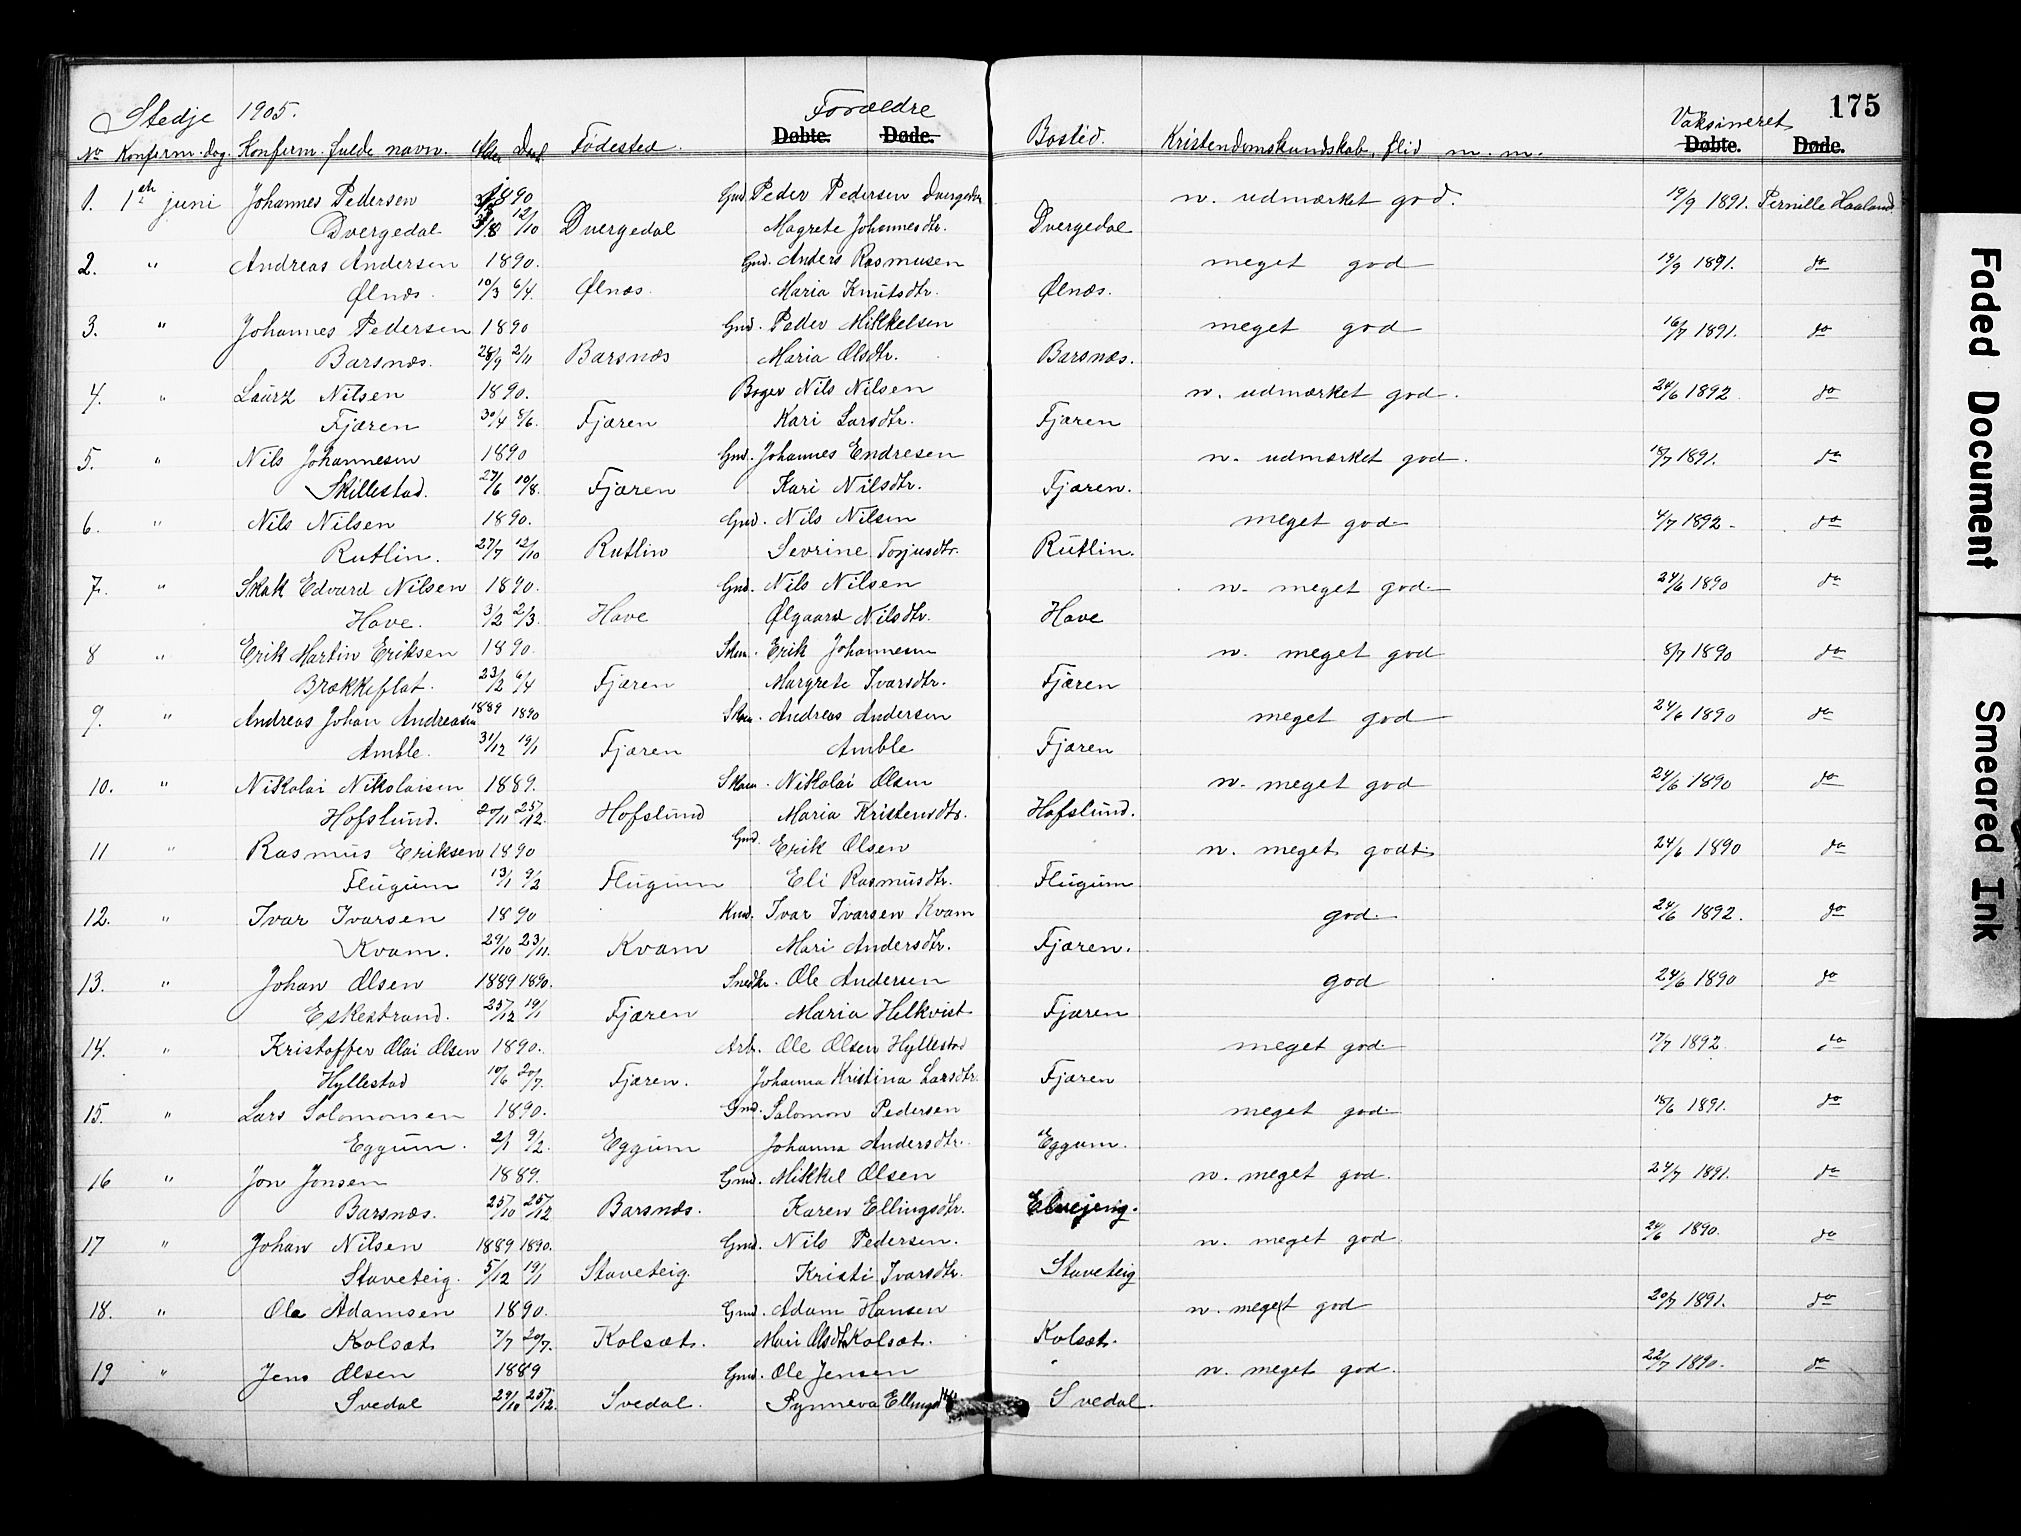 175
Stedje 1905. Forældre Vaksineret
Døbte. Døde. Døbte. Døde.
No Konferm. dag. Konferm. fulde navn. Alder Daab Fødested. Bosted. Kristendomskundskab, flid m. m.
1. 1ste juni Johannes Pedersen 1890 Gmd. Peder Pedersen Dvergedal n. udmærket god. 19/9 1891. Pernille Haaland
Dvergedal 31/8 12/10 Dvergedal Magrete Johannesdtr. Dvergedal
2. " Andreas Andersen 1890. Gmd. Anders Rasmusen meget god 19/9 1891. do
Ølnæs. 10/3 6/4. Ølnæs. Maria Knutsdtr. Ølnæs.
3. " Johannes Pedersen 1890 Gmd. Peder Mikkelsen meget god 16/7 1891. do
Barsnæs. 28/9 2/11 Barsnæs Maria Olsdtr. Barsnæs.
4. " Laurz Nilsen 1890. Bager Nils Nilsen n. udmærket god. 24/6 1892. do
Fjæren 30/4 8/6. Fjæren Kari Larsdtr. Fjæren
5. " Nils Johannesen 1890 Gmd. Johannes Endresen n. udmærket god. 18/7 1891. do
Skillestad. 27/6 10/8. Fjæren Kari Nilsdtr. Fjæren.
6. " Nils Nilsen 1890. Gmd. Nils Nilsen meget god 4/7 1892. do
Rutlin. 27/7 12/10 Rutlin Sevrine Torjusdtr. Rutlin.
7. " Skak Edvard Nilsen 1890. Gmd. Nils Nilsen n. meget god 24/6 1890 do
Have. 3/2 2/3. Have Ølgaard Nilsdtr. Have
8 " Erik Martin Eriksen 1890. Skm. Erik Johannesen n. meget god 8/7 1890 do
Brækkeflat. 23/2 6/4 Fjæren Margrete Ivarsdtr. Fjæren
9. " Andreas Johan Andreasen 1889 1890 Skm. Andreas Andersen meget god 24/6 1890 do
Amble. 31/12 19/1 Fjæren Amble Fjæren
10. " Nikolai Nikolaisen 1889. Skm. Nikolai Olsen n. meget god 24/6 1890 do
Hofslund. 20/11 25/12. Hofslund Maria Kristensdtr. Hofslund.
11 " Rasmus Eriksen 1890 Gmd. Erik Olsen n. meget godt 24/6 1890 do
Flugum 13/1 9/2 Flugum Eli Rasmusdtr. Flugum
12. " Ivar Ivarsen 1890 Kmd. Ivar Ivarsen Kvam god. 24/6 1892. do
Kvam. 29/10 23/11. Kvam Mari Andersdtr. Fjæren.
13. " Johan Olsen 1889 1890. Snedkr. Ole Andersen god 24/6 1890 do
Eskestrand. 25/12 19/1 Fjæren Maria Helkvist Fjæren
14. " Kristoffer Olai Olsen 1890. Arb. Ole Olsen Hyllestad meget god. 17/7 1892. do
Hyllestad 10/6 20/7. Fjæren. Johanna Kristina Larsdtr. Fjæren
15. " Lars Salomonsen 1890. Gmd. Salomon Pedersen meget god. 18/6 1891. do
Eggum. 2/1 9/2. Eggum Johanna Andersdtr. Eggum.
16 " Jon Jonsen 1889. Gmd. Mikkel Olsen n. meget god. 24/7 1891. do
Barsnæs. 25/10 25/12 Barsnæs. Karen Ellingsdtr.
17 " Johan Nilsen 1889 1890. Gmd. Nils Pedersen. n. meget god. 24/6 1890. do
Staveteig. 5/12 19/1 Staveteig. Kristi Ivarsdtr. Staveteig
18. " Ole Adamsen 1890. Gmd. Adam Hansen n. meget god 20/7 1891. do
Kolsæt. 7/7 20/7. Kolsæt. Mari Olsdtr. Kolsæt. Kolsæt.
19 " Jens Olsen 1889 Gmd. Ole Jensen n. meget god. 22/7 1890. do
Svedal 29/10 25/12. Svedal. Synneva Ellingsdtr. Svedal.
Faded Document
Smeared Ink